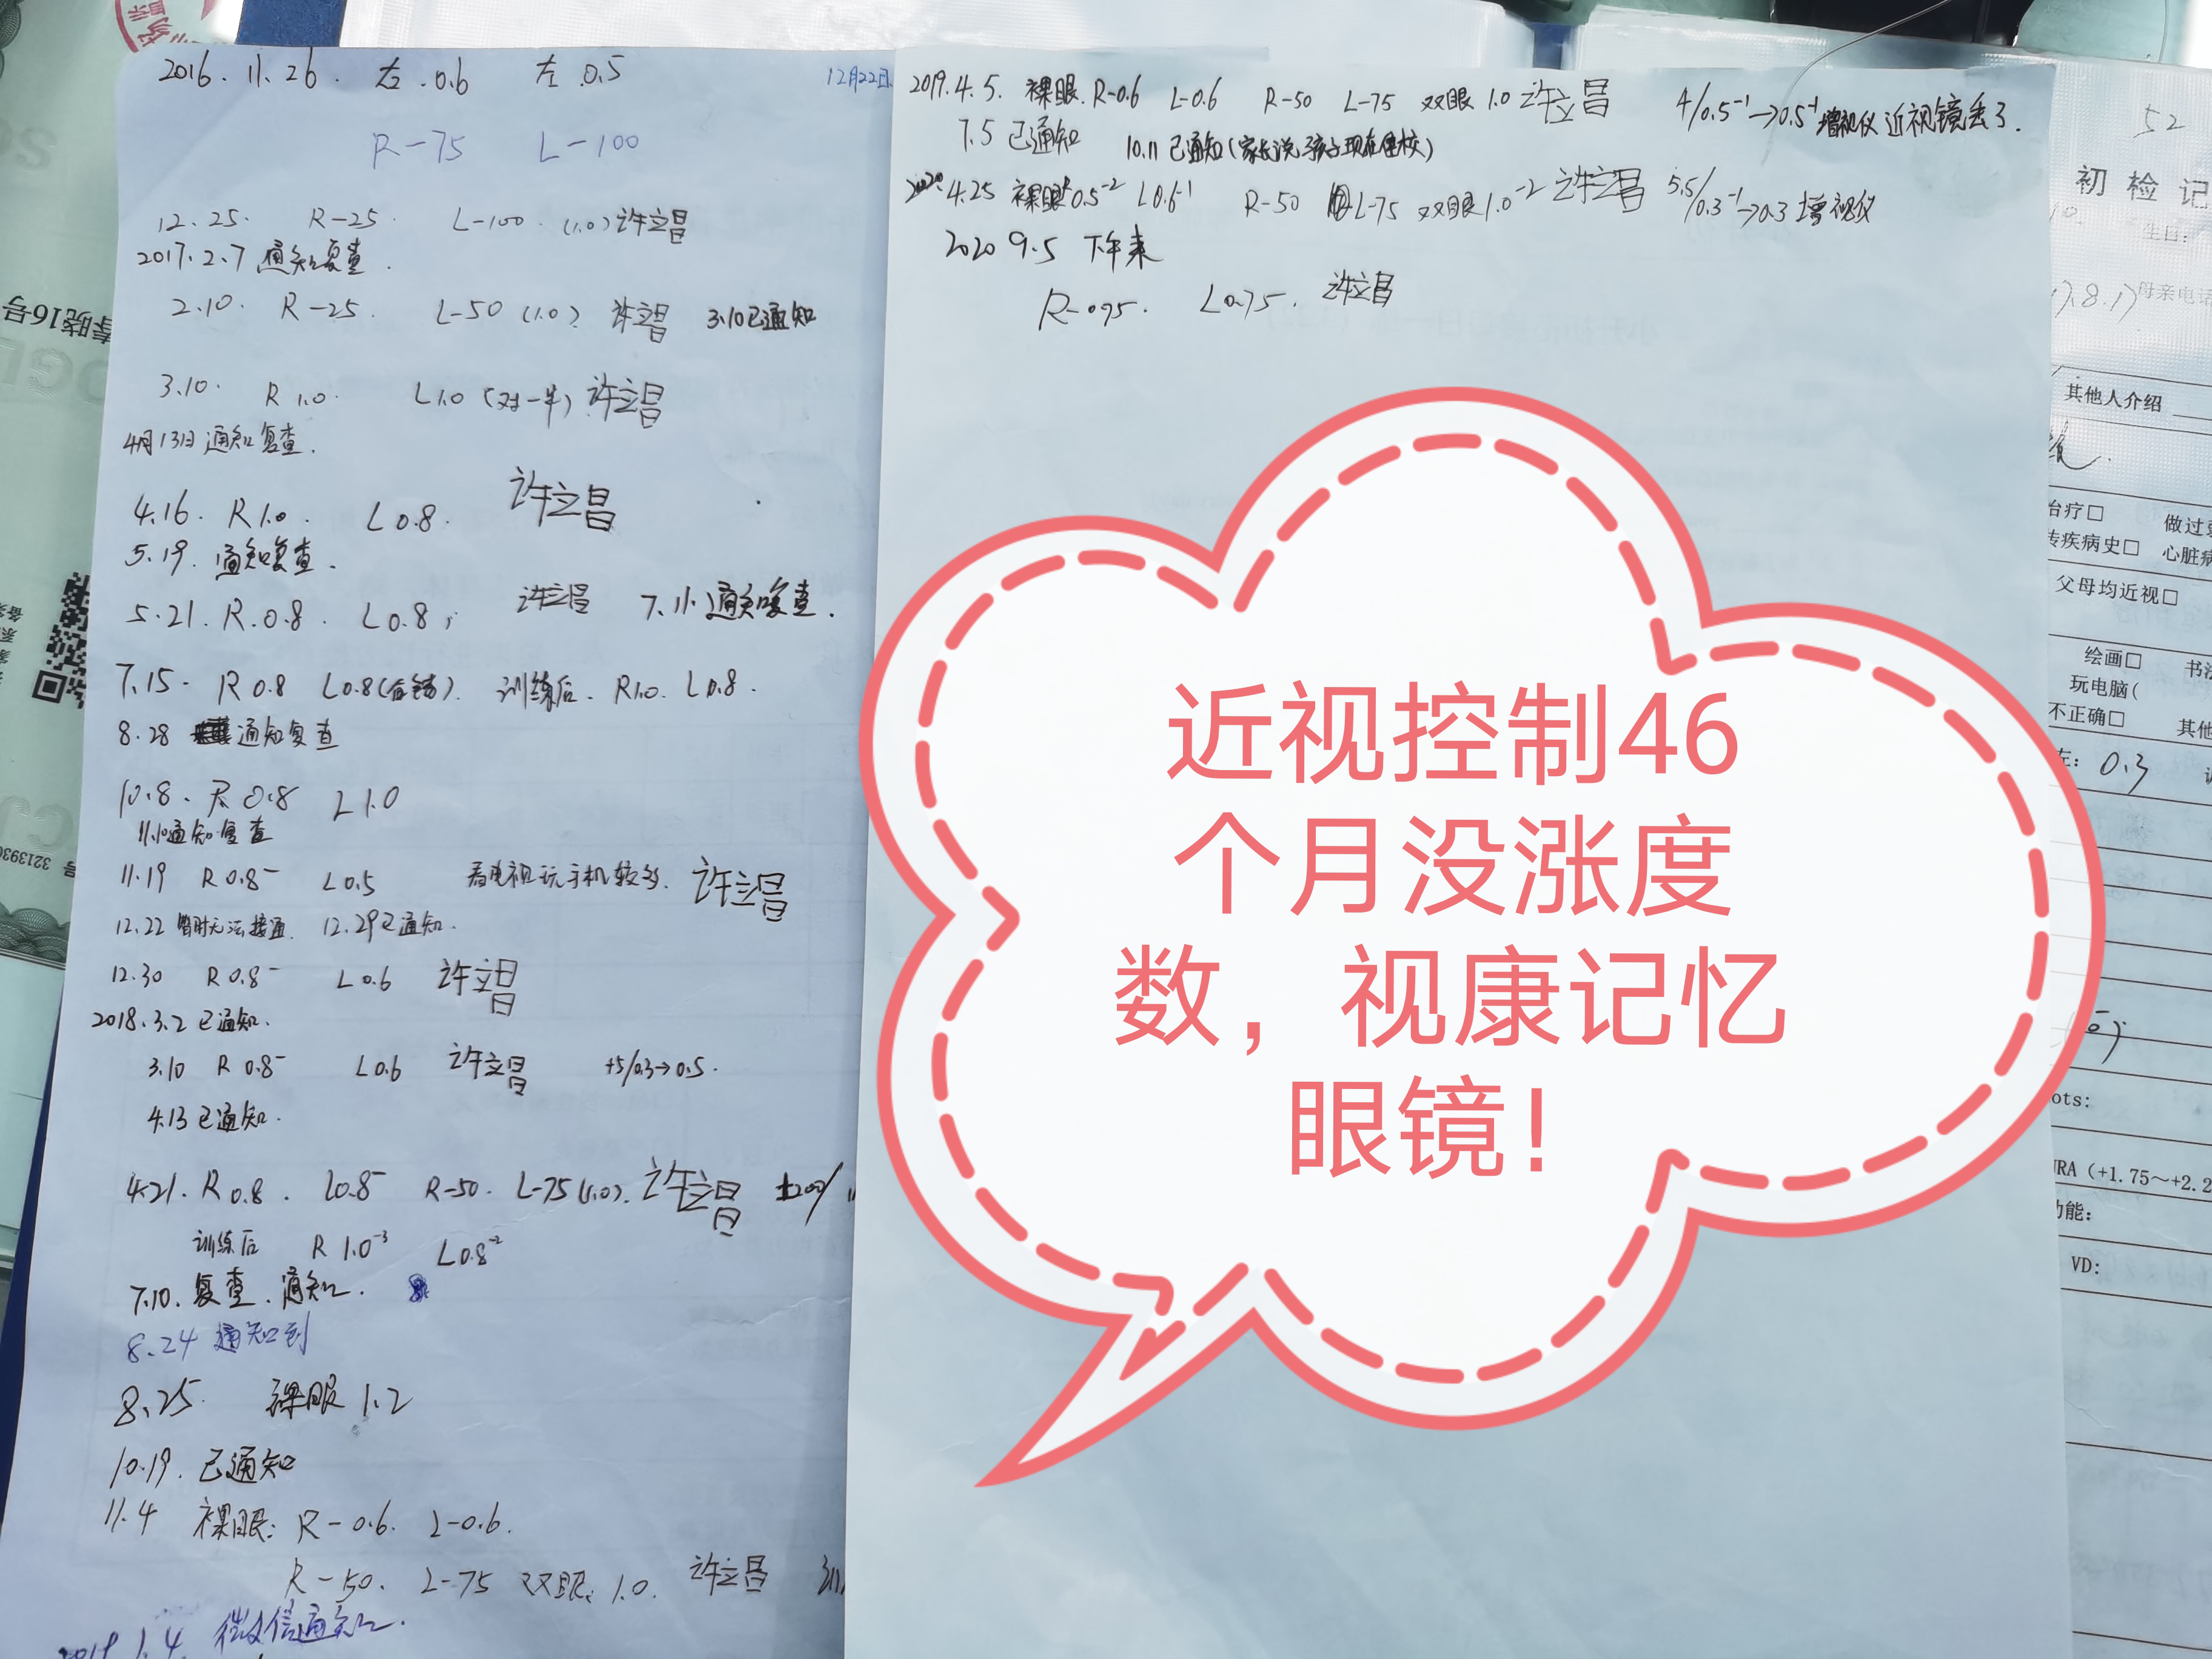 2016.11.26. 右.0.6 左.0.5
12月22日
R-75 L-100
12.25. R-25. L-100.(1.0)许立昌
2017.2.7 通知复查.
2.10. R-25. L-50(1.0). 许立昌 3.10已通知
3.10. R 1.0. L1.0(对一半)许立昌
4月13日通知复查.
4.16. R1.0. L0.8. 许立昌
5.19. 通知复查.
5.21. R.0.8. L0.8; 许立昌 7.11.通知复查.
7.15. R0.8 L0.8 训练后. R1.0. L0.8.
8.28 通知复查
10.8. R 0.8 L1.0
11.10通知复查
11.19 R0.8⁻ L0.5 看电视玩手机较多. 许立昌
12.22 暂时无法接通. 12.29已通知.
12.30 R0.8⁻ L0.6 许立昌
2018.3.2已通知.
3.10 R0.8⁻ L0.6 许立昌 +5/0.3→0.5.
4.13已通知.
4.21. R0.8. L0.8⁻ R-50. L-75(1.0). 许立昌
训练后 R1.0⁻³ L0.8⁻²
7.10. 复查.通知.
8.24 通知到
8.25. 裸眼1.2
10.19. 已通知
11.4 裸眼: R-0.6. L-0.6.
R-50. L-75 双眼: 1.0. 许立昌
2019.1.4 微信通知.
2019.4.5. 裸眼.R-0.6 L-0.6 R-50 L-75 双眼1.0许立昌 4/0.5⁻¹→0.5⁻¹增视仪 近视镜丢了.
7.5已通知 10.11已通知(家长说孩子现在住校)
2020.4.25 裸眼R0.5⁻² L0.6⁻¹ R-50 L-75 双眼1.0⁻²许立昌 5.5/0.3⁻¹→0.3增视仪
2020 9.5 下午来
R-0.75. L0.75. 许立昌
近视控制46
个月没涨度
数，视康记忆
眼镜！
52
初检记
生日:
7.8.17母亲电话
其他人介绍
治疗□ 做过
传疾病史□ 心脏病
父母均近视□
绘画□ 书法
玩电脑(
不正确□ 其他
左: 0.3
ots:
NRA（+1.75～+2.2
功能:
VD:
李晓16号
号 3213930